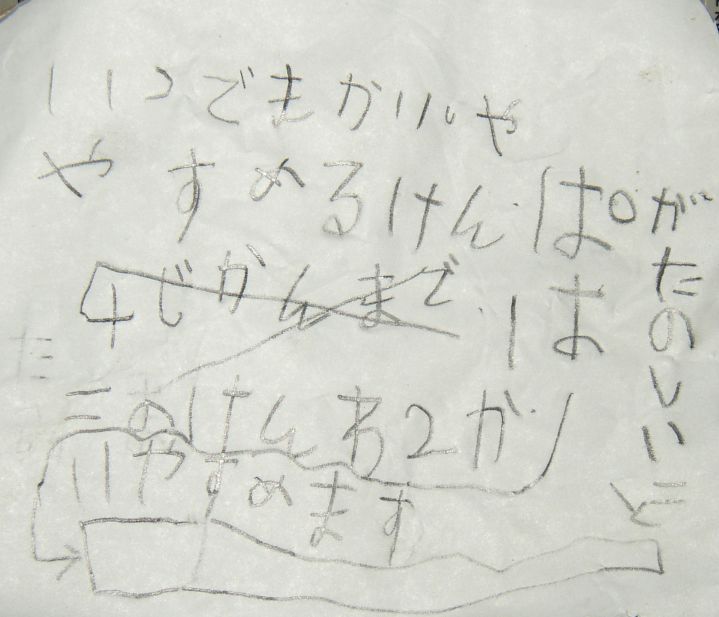 いつでまかいや
やすめるけん ぱが
たのしい
4じかんまで は
このけんわ2か
いやすめます